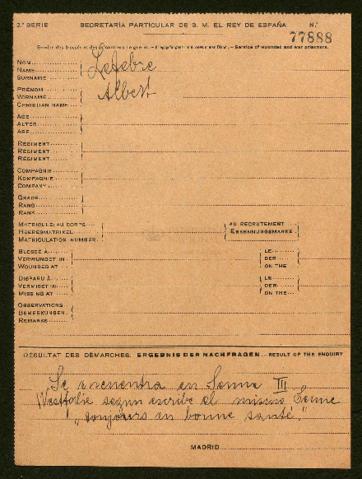 2.ª SERIE SECRETARÍA PARTICULAR DE S. M. EL REY DE ESPAÑA N.º
77888
Service of wounded and war prisoners.
NOM
NAME
SURNAME
Lefebre
PRÉNOM
VORNAME
CHRISTIAN NAME
Albert
AGE
ALTER
AGE
REGIMENT
REGIMENT
REGIMENT
COMPAGNIE
KOMPAGNIE
COMPANY
GRADE
RANG
RANK
MATRICULE: AU CORPS
HEERESMATRIKEL
MATRICULATION NUMBER
AU RECRUTEMENT
ERKENNUNGSMARKE
BLESSÉ À
VERWUNDET IN
WOUNDED AT
LE
DER
ON THE
DISPARU À
VERMISST IN
MISSING AT
LE
DER
ON THE
OBSERVATIONS
BEMERKUNGEN
REMARKS
RESULTAT DES DÉMARCHES. ERGEBNIS DER NACHFRAGEN. RESULT OF THE ENQUIRY
Se encuentra en Senne III
Westfalie segun escribe el mismo Senne
„toujours en bonne santé."
MADRID